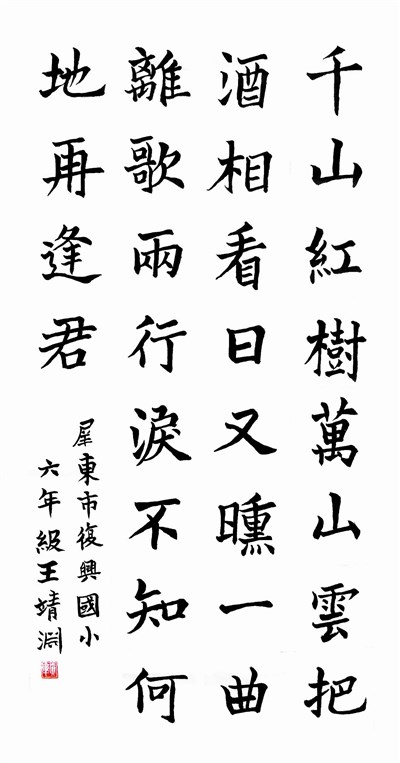 千山紅樹萬山雲把
酒相看日又曛一曲
離歌兩行淚不知何
地再逢君
屏東市復興國小
六年級王靖淵